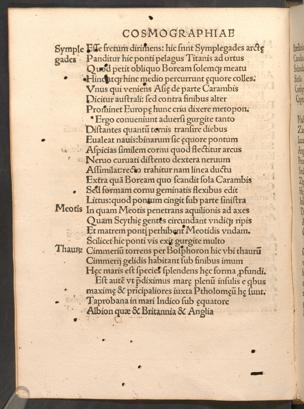 COSMOGRAPHIAE
Symple Esse fretum dirimens: hic sunt Symplegades arctę
gades Panditur hic ponti pelagus Titanis ad ortus
Quod petit obliquo Boream solemque meatu
Hinc atque hinc medio percurrunt ęquore colles.
Vnus qui veniens Asię de parte Carambis
Dicitur australi: sed contra finibus alter
Prominet Europę: hunc criu dixere metopon.
Ergo conueniunt aduersi gurgite tanto
Distantes quantū ternis transire diebus
Eualeat nauis: binarum sic ęquore pontum
Aspicias similem cornu quod flectitur arcus
Neruo curuati distento dextera neruum
Assimilat: recto trahitur nam linea ductu
Extra quā Boream quo scandit sola Carambis
Sed formam cornu geminatis flexibus edit
Littus: quod pontum cingit sub parte sinistra
Meotis In quam Meotis penetrans aquilonis ad axes
Quam Scythię gentes circundant vndique ripis
Et matrem ponti perhibent Meotidis vndam.
Scilicet hic ponti vis exit gurgite multo
Thaurę Cimmeriū torrens per Bosphoron hic vbi thaurū
Cimmerij gelidis habitant sub finibus imum
Hęc maris est species splendens hęc forma profundi.
Est autē vt prædiximus marę plenū insulis e quibus
maximę & pricipaliores iuxta Ptholomęū hę sunt.
Taprobana in mari Indico sub equatore
Albion quæ & Britannia & Anglia